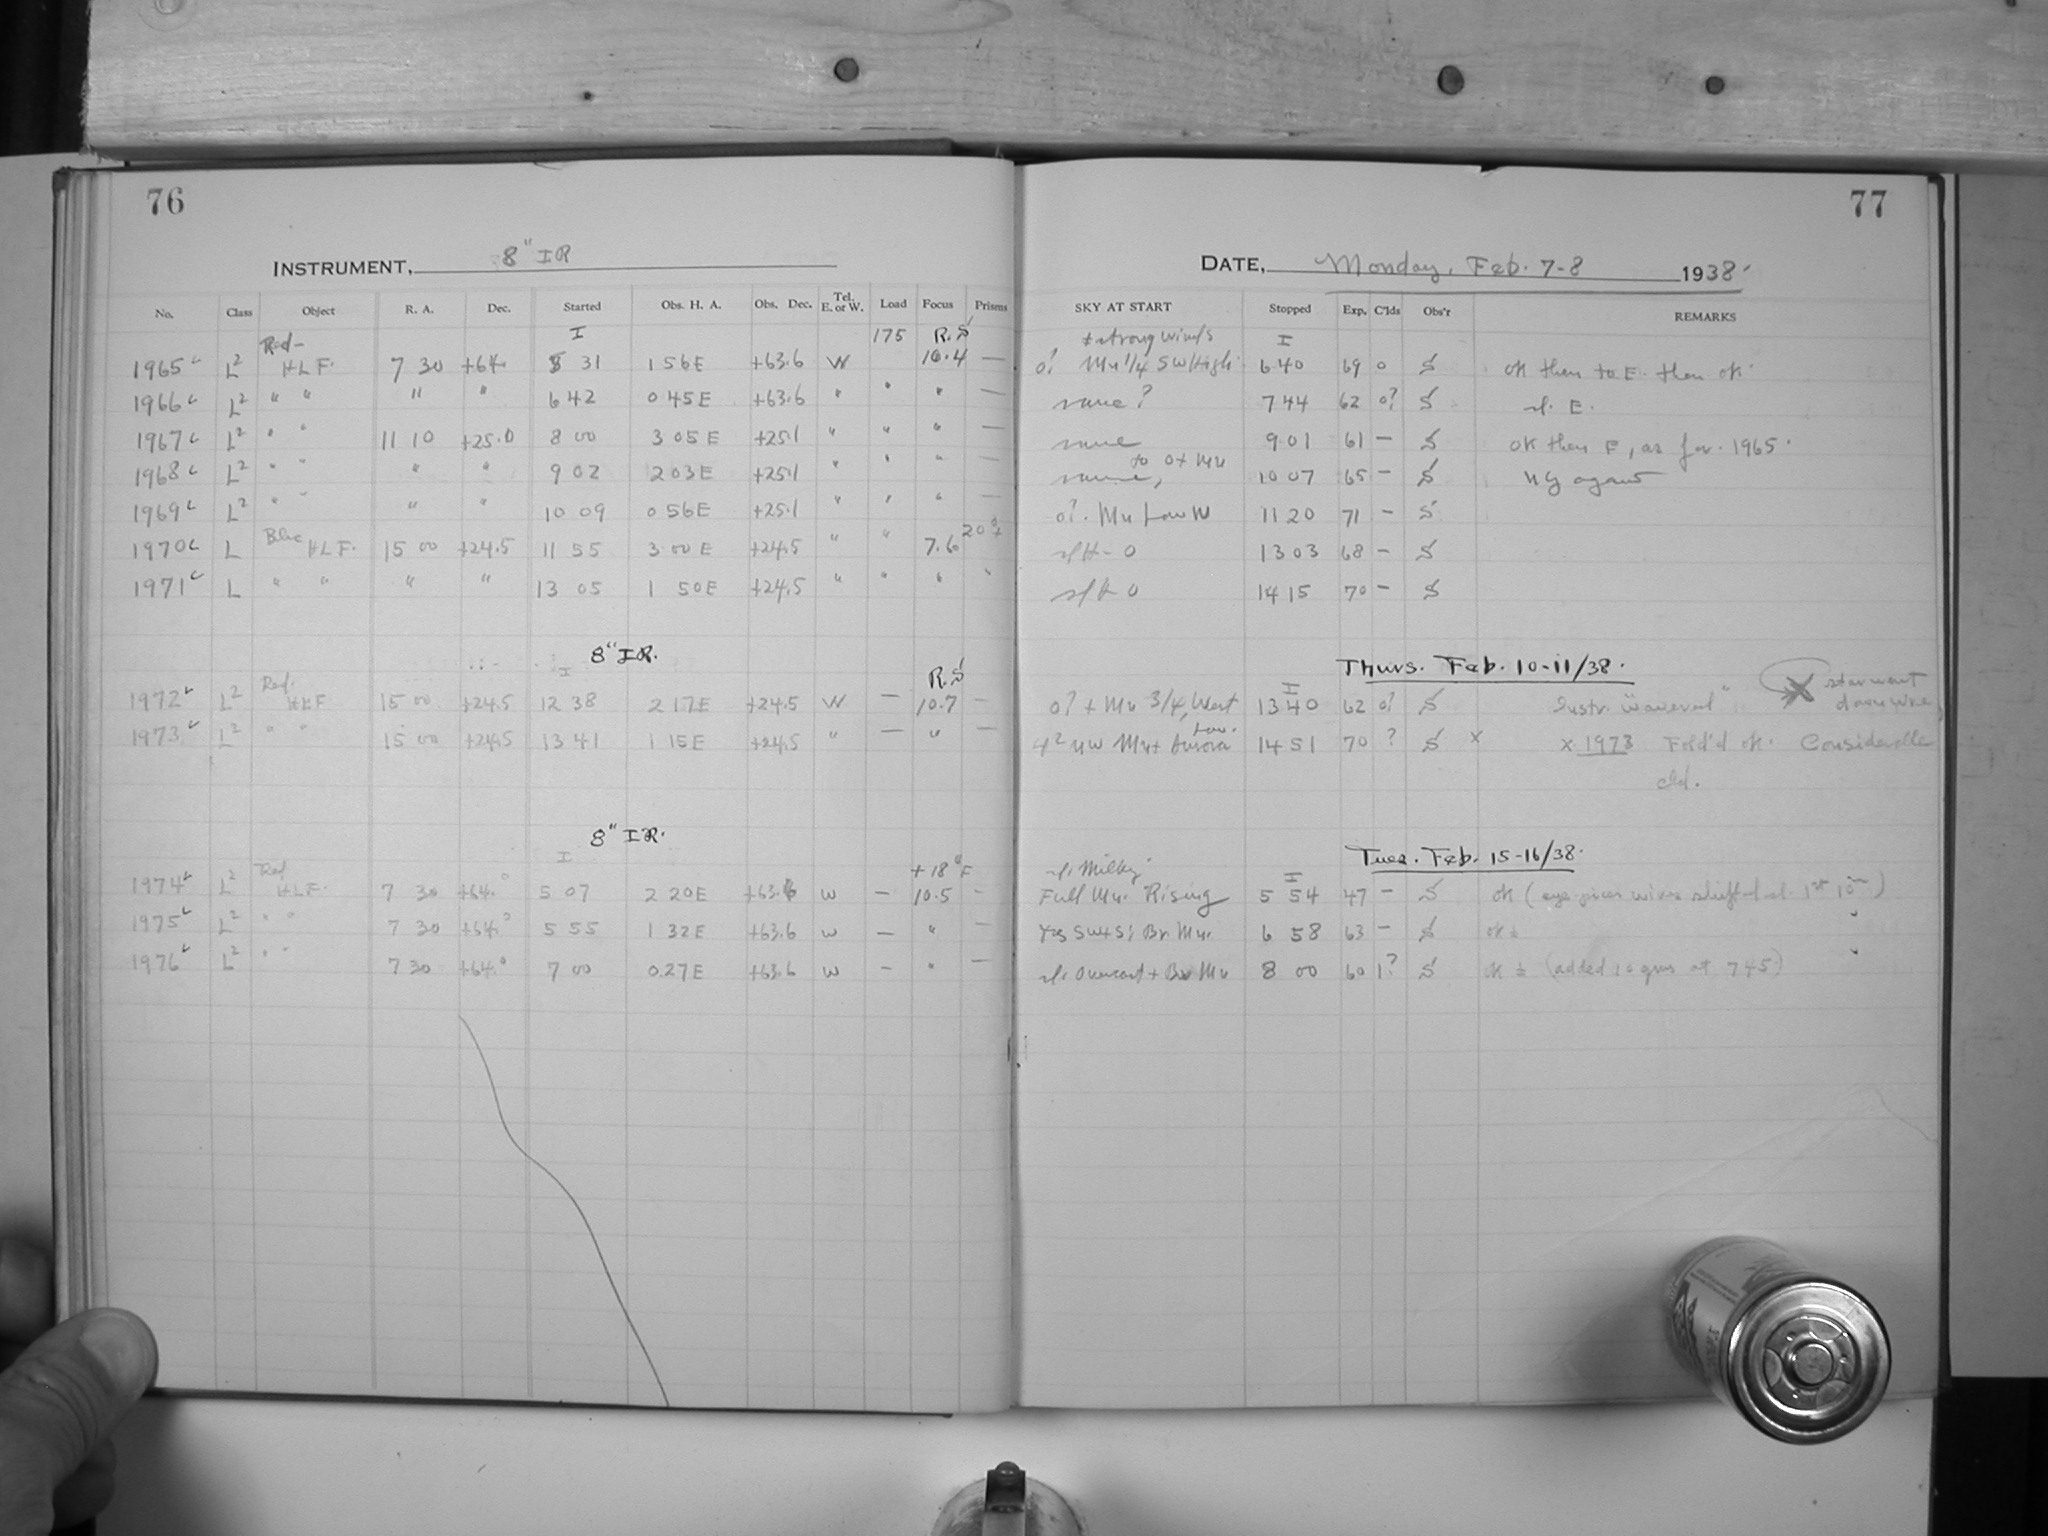 76
77
INSTRUMENT, 8" IR
DATE, Monday, Feb. 7-8 1938.
No. Class Object R. A. Dec. Started Obs. H. A. Obs. Dec. Tel. E. or W. Load Focus Prisms SKY AT START Stopped Exp. C'lds Obs'r REMARKS
Red- I 175 R.S + strong winds I
1965 L² HLF. 7 30 +64. 5 31 1 56E +63.6 W 10.4 — 0? Mn 1/4 SW High. 6 40 69 0 S OK then to E. then OK.
1966 L² " " " " 6 42 0 45E +63.6 " " " — same? 7 44 62 0? S sl. E.
1967 L² " " 11 10 +25.0 8 00 3 05E +25.1 " " " — same 9 01 61 — S OK then E, as for 1965.
1968 L² " " " " 9 02 2 03E +25.1 " " " — same, to 0+ Mn 10 07 65 — S NG again
1969 L² " " " " 10 09 0 56E +25.1 " " " — 0?. Mn Low W 11 20 71 — S
1970 L Blue HLF. 15 00 +24.5 11 55 3 00E +24.5 " " 7.6 20 slH-0 13 03 68 — S
1971 L " " " " 13 05 1 50E +24.5 " " " " slH 0 14 15 70 — S
8" IR. Thurs. Feb. 10-11/38.
Red. I R.S I
1972 L² HLF 15 00 +24.5 12 38 2 17E +24.5 W — 10.7 — 0? + Mn 3/4, West 13 40 62 0? S Instr. "wavered" star went down wire
1973 L² " " 15 00 +24.5 13 41 1 15E +24.5 " — " — NW Mn + Aurora Low. 14 51 70 ? S x x 1973 Fold'd OK. Considerable
cld.
8" IR. Tues. Feb. 15-16/38.
Red I +18°F sl. Milky I
1974 L² HLF. 7 30 +64.° 5 07 2 20E +63.6 W — 10.5 — Full Mn. Rising 5 54 47 — S OK (eye-piece wires shifted sl. 1st 10m)
1975 L² " " 7 30 +64.° 5 55 1 32E +63.6 W — " SW + S; Br. Mn. 6 58 63 — S OK ±
1976 L² " " 7 30 +64.° 7 00 0.27E +63.6 W — " — sl. Overcast + Br Mn 8 00 60 1? S OK ± (added 10 gms at 7 45)